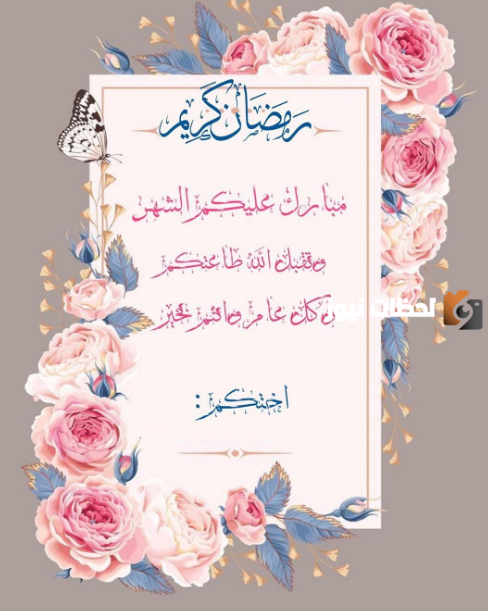 رمضان كريم
مبارك عليكم الشهر
وتقبل الله طاعتكم
وكل عام وانتم بخير
لحظات نيوز
اختكم :